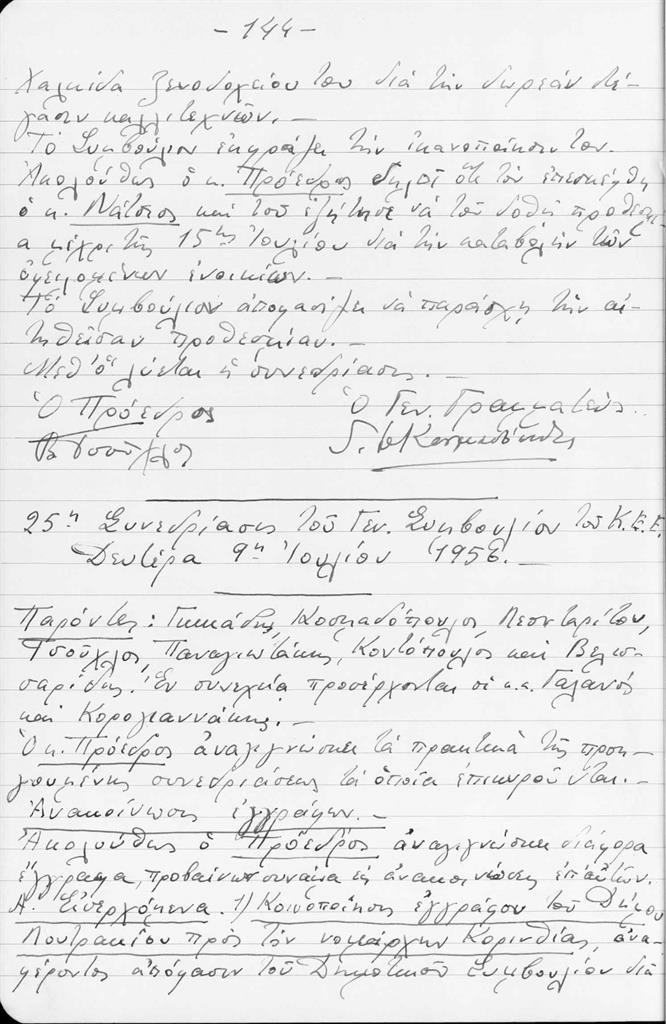 - 144 -
Χαλκίδα ξενοδοχείου του διά τήν δωρεάν στέ-
γασιν καλλιτεχνῶν. —
Τό Συμβούλιον ἐκφράζει τήν ἱκανοποίησιν του.
Ἀκολούθως ὁ κ. Πρόεδρος δηλοῖ ὅτι τόν ἐπεσκέφθη
ὁ κ. Νάτσιος καί τοῦ ἐζήτησε νά τοῦ δοθῇ προθεσμί-
α μέχρι τῆς 15ης Ἰουλίου διά τήν καταβολήν τῶν
ὀφειλομένων ἐνοικίων. —
Τό Συμβούλιον ἀποφασίζει νά παράσχῃ τήν αἰ-
τηθεῖσαν προθεσμίαν. —
Μεθ' ὅ λύεται ἡ συνεδρίασις. —
Ὁ Πρόεδρος Ὁ Γεν. Γραμματεύς
25η Συνεδρίασις τοῦ Γεν. Συμβουλίου τοῦ Κ.Ε.Ε.
Δευτέρα 9η Ἰουλίου 1956. —
Παρόντες: Γιμκάδης, Κοσμαδόπουλος, Λεονταρίτου,
Τσοῦχλος, Παναγιωτάκης, Κοντόπουλος καί Βελισ-
σαρίδης. Ἐν συνεχείᾳ προσέρχονται οἱ κ.κ. Γαλανός
καί Κορογιαννάκης. —
Ὁ κ. Πρόεδρος ἀναγιγνώσκει τά πρακτικά τῆς προη-
γουμένης συνεδριάσεως τά ὁποῖα ἐπικυροῦνται. —
Ἀνακοίνωσις ἐγγράφων. —
Ἀκολούθως ὁ Πρόεδρος ἀναγιγνώσκει διάφορα
ἔγγραφα, προβαίνων συνάμα εἰς ἀνακοινώσεις ἐπ' αὐτῶν.
Α. Εἰσερχόμενα. 1) Κοινοποίησις ἐγγράφου τοῦ Δήμου
Λουτρακίου πρός τόν νομάρχην Κορινθίας, ἀνα-
φέροντος ἀπόφασιν τοῦ Δημοτικοῦ Συμβουλίου διά